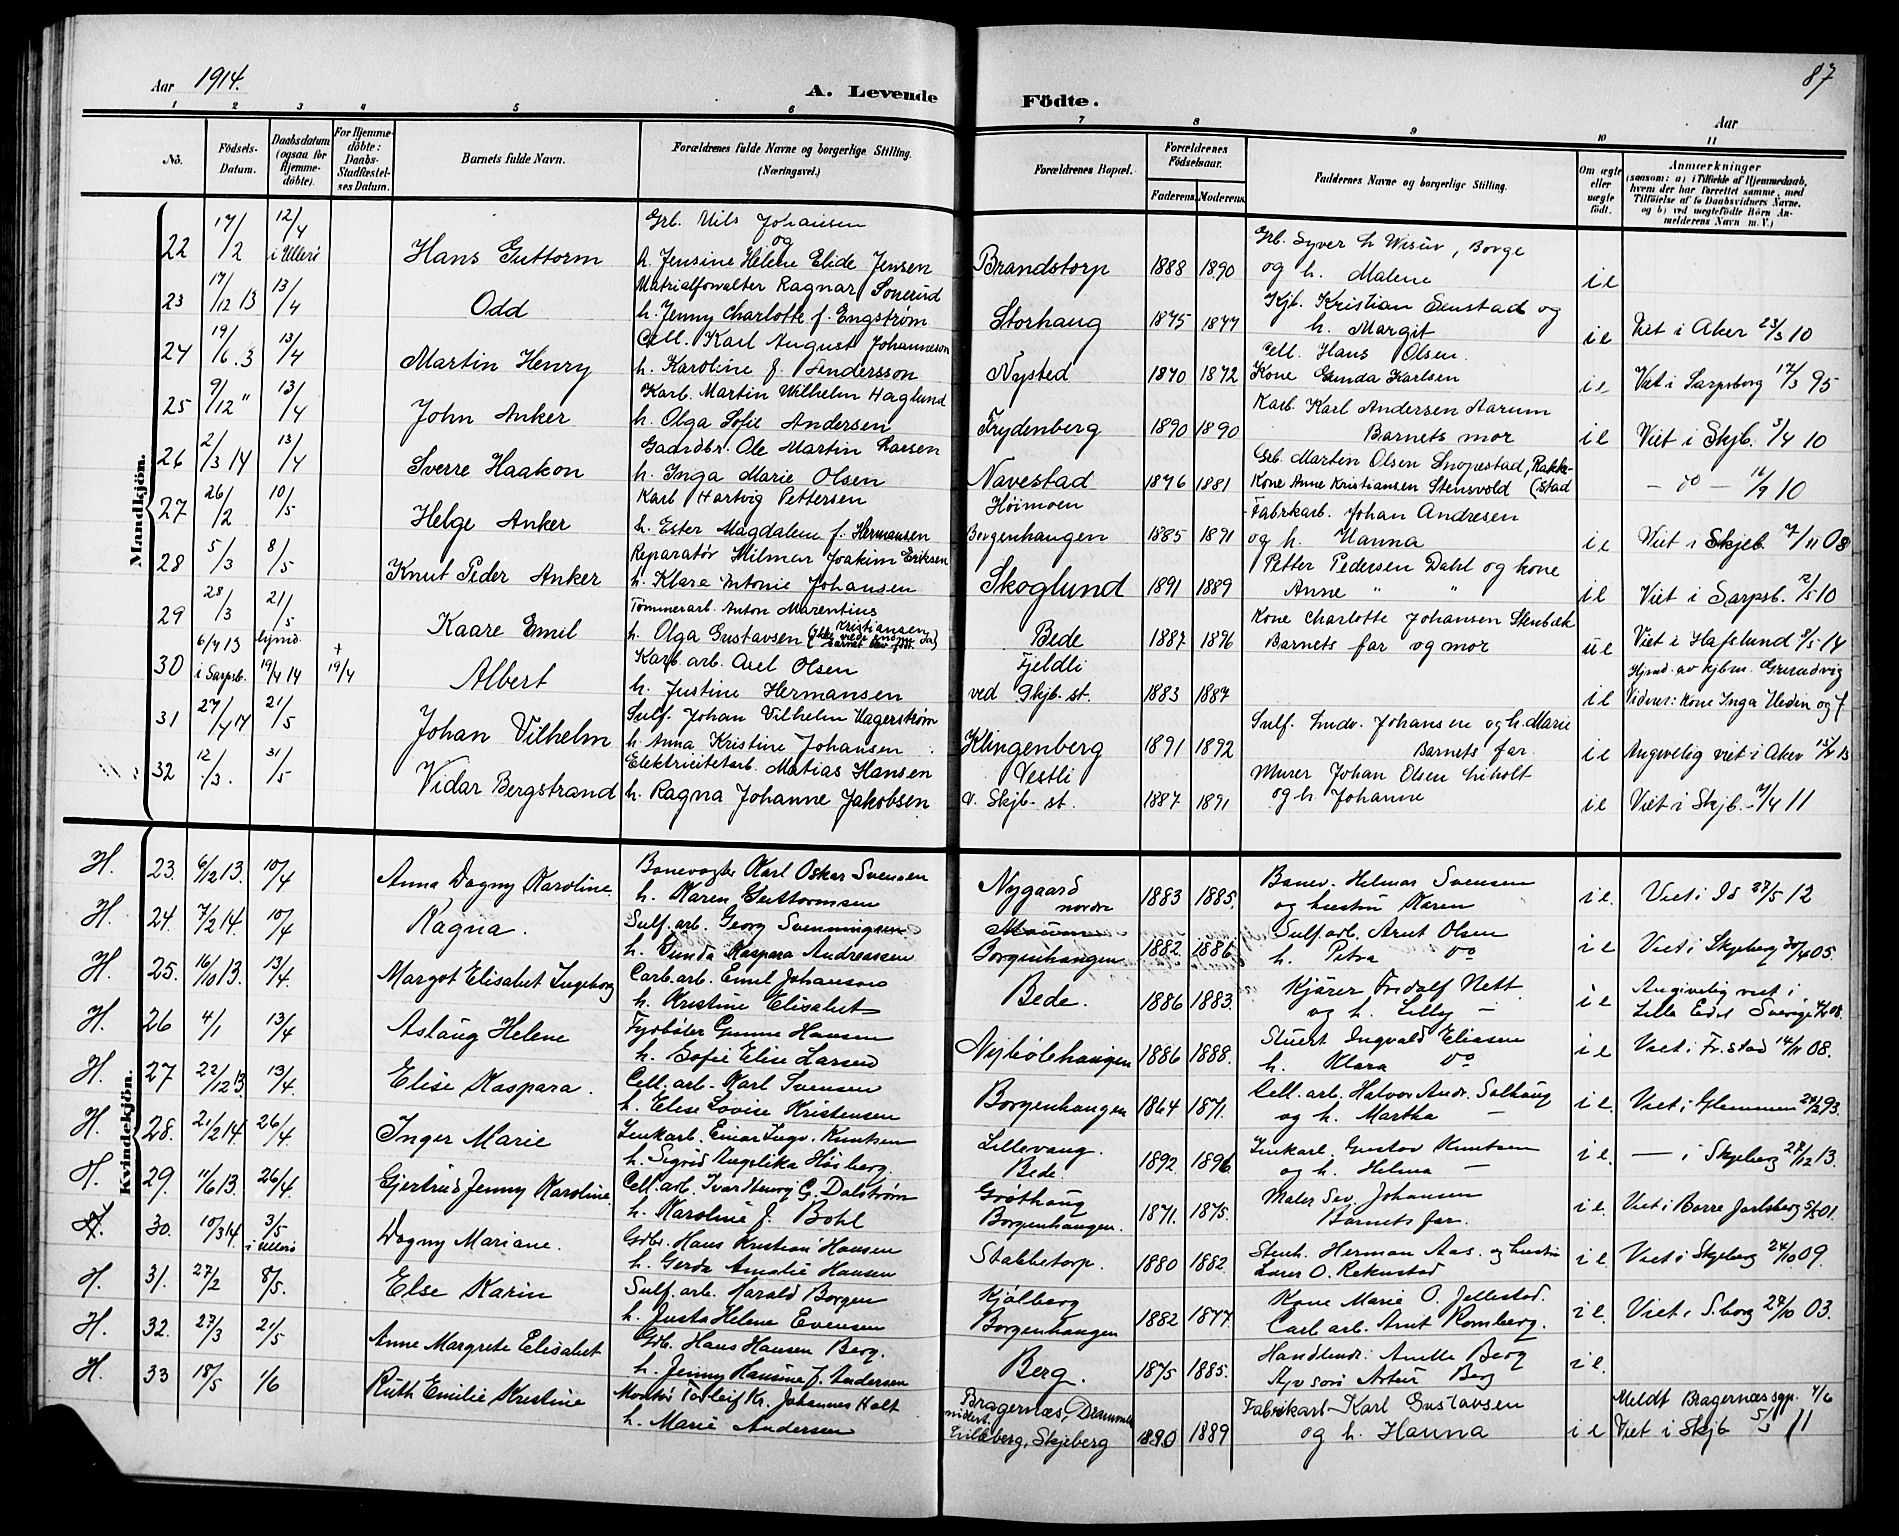 Aar 1914.
A. Levende Födte.
87
Aar
1 2 3 4 5 6 7 8 9 10 11
No.
Födsels-Datum.
Daabsdatum (ogsaa for Hjemme-döbte).
For Hjemme-döbte: Daabs-Stadfæstel-ses Datum.
Barnets fulde Navn.
Forældrenes fulde Navne og borgerlige Stilling. (Næringsvei.)
Forældrenes Bopæl.
Forældrenes Födselsaar.
Faderens. Moderens.
Faddernes Navne og borgerlige Stilling.
Om ægte eller uægte födt.
Anmærkninger
(saasom: a) i Tilfælde af Hjemmedaab, hvem der har forrettet samme, med Tilföielse af to Daabsvidners Navne, og b) ved uægtefödte Börn An-melderens Navn m. V.)
Mandkjön.
22 17/2 12/4 i Ullerö Hans Guttorm Grb. Nils Johansen og h. Jensine Helene Elide Jensen Brandstorp 1888 1890 Grb. Syver h Wisur, Borge og h. Malene i e
23 17/12 13 13/4 Odd Matrialforvalter Ragnar Sonerud h. Jenny Charlotte f. Engström Storhaug 1875 1877 Kjb. Kristian Senstad og h. Margit i e Viet i Aker 23/3 10
24 19/6 . 3 13/4 Martin Henry Cell. Karl August Johanneson h. Karoline f. Andersson Nysted 1870 1872 Cell. Hans Olsen. Kone Gunda Karlsen i e Viet i Sarpsborg 17/3 95
25 9/12 " 13/4 John Anker Karb. Martin Wilhelm Haglund h. Olga Sofie Andersen Frydenberg 1890 1890 Karb. Karl Andersen Aarum Barnets mor i e Viet i Skjb. 3/4 10
26 2/3 14 13/4 Sverre Haakon Gaardbr. Ole Martin Larsen h. Inga Marie Olsen Navestad 1876 1881 Grb. Martin Olsen Snopestad, Rakke-(stad Kone Anne Kristiansen Stensvold - do - 16/9 10
27 26/2 10/5 Helge Anker Karb Hartvig Pettersen h. Ester Magdalene f. Hermansen Höimoen Borgenhaugen 1885 1891 Fabrkarb. Johan Andresen og h. Hanna i e Viet i Skjeb. 7/11 08
28 5/3 8/5 Knut Peder Anker Reparatör Hilmar Joakim Eriksen h. Klara Antonie Johansen Skoglund 1891 1889 Petter Pedersen Dahl og kone Anne " " i e Viet i Sarpsb. 12/5 10
29 28/3 21/5 Kaare Emil Tömmerarb. Anton Marentius Kristiansen h. Olga Gustavsen Bede 1887 1896 Kone Charlotte Johansen Stenbæk Barnets far og mor u e Viet i Hafslund 9/5 14
30 6/4 13 i Sarpsb. hjmd. 19/4 14 + 19/4 Albert Karb. arb. Axel Olsen h. Justine Hermansen Fjeldli ved Skjb. st. 1883 1887 i e Hjmd. av hjbm. Grundvig Vidner: Kone Inga Hedin og f
31 27/4 14 21/5 Johan Vilhelm Sulf. Johan Vilhelm Hagerström h. Anna Kristine Johansen Klingenberg 1891 1892 Sulf. Andr. Johansen og h. Marie Barnets far. i e Angivelig viet i Aker 13
32 12/3. 31/5 Vidar Bergstrand Elektricitetarb. Matias Hansen h. Ragna Johanne Jakobsen Vestli v. Skjb. st. 1887 1891 Murer Johan Olsen Liholt og h Johanne i e Viet i Skjb. 4/4 11
Kvindekjön.
H. 23. 6/12 13. 10/4 Anna Dagny Karoline Banevogter Karl Oskar Svensen h. Karen Guttormsen Nygaard nordre 1883 1885. Banev. Helmar Svensen og hustru Karen i e. Viet i Id 27/5 12
H. 24. 7/2 14. 10/4 Ragna. Sulf. arb. Georg Svenningsen h. Gunda Kaspara Andreassen Borgenhaugen 1882. 1886. Sulf arb. Arnt Olsen h. Petra do i e Viet i Skjeberg 30/4 05.
H. 25. 16/10 13. 13/4. Margot Elisabet Ingeborg Carb. arb. Emil Johanson h. Kristine Elisabet Bede. 1886 1883. Kjörer Fredolf Nett og h. Lilly - i e Angivelig viet i Lilla Edet Sverige 08.
H. 26 4/1 13/4 Aslaug Helene Fyrböter Gunnar Hansen h. Sofie Elise Larsen Nybölehaugen 1886 1888. Stuert Ingvald Eliasen h. Klara do i e Viet i Fr.stad 14/11 08.
H. 27 22/12 13 13/4. Elise Kaspara. Cell. arb. Karl Svensen h. Elise Lovise Kristensen Borgenhaugen 1864 1871. Cell. arb. Halvor Andr. Solhaug og h. Martha - i e. Viet i Glemmen 93.
H. 28. 21/2 14. 26/4. Inger Marie Zinkarb. Einar Ingv. Knutsen h. Sigrid Angelika Höiberg. Lillevang. Bede. 1892 1896 Zinkarb. Gustav Knutsen og h. Helena - i e. - i Skjeberg 27/12 13.
H. 29. 11/6 13. 26/4. Gjertrud Jenny Karoline Cell. arb. Ivardtberg G. Dalström h. Karoline f. Bohl Gröthaug Borgenhaugen. 1871. 1875. Maler Sev. Johansen Barnets far. i e. Viet i Borre Jarlsberg 01.
H. 30. 10/3 14. 3/5 i Ullerö Dagny Mariane. Gdbr. Hans Kristian Hansen h. Gerda Amalie Hansen Stabbetorp. 1880 1882. Stenh. Herman Aas. og hustru Lærer O. Rekustad i e. Viet i Skjeberg 24/10 09.
H. 31. 27/2 8/5. Else Karin Sulf. arb. Harald Borgen h. Justa Helene Evensen Kjölberg Borgenhaugen 1882 1877. Kone Marie O. Jellestad. Carb arb. Arnt Romberg. i e. Viet i S.borg 24/10 03.
H. 32. 27/3 21/5 Anne Margrete Elisabet Gdb. Hans Hansen Berg. h. Jenny Hansine f. Andersen Berg. 1875 1885. Handlende: Anette Berg Arvesön Artur Berg i e.
H. 33 18/5 1/6 Ruth Emilie Kristine Montör Torleif Kr. Johannes Holt h. Marie Andersen Bragernæs, Drammen midlert. Lilleberg, Skjeberg 1890 1889 Fabrikarb Karl Gustavsen og h. Hanna i e Meldt Bragernæs sgp. 4/6 Viet i Skjb 5/3 11